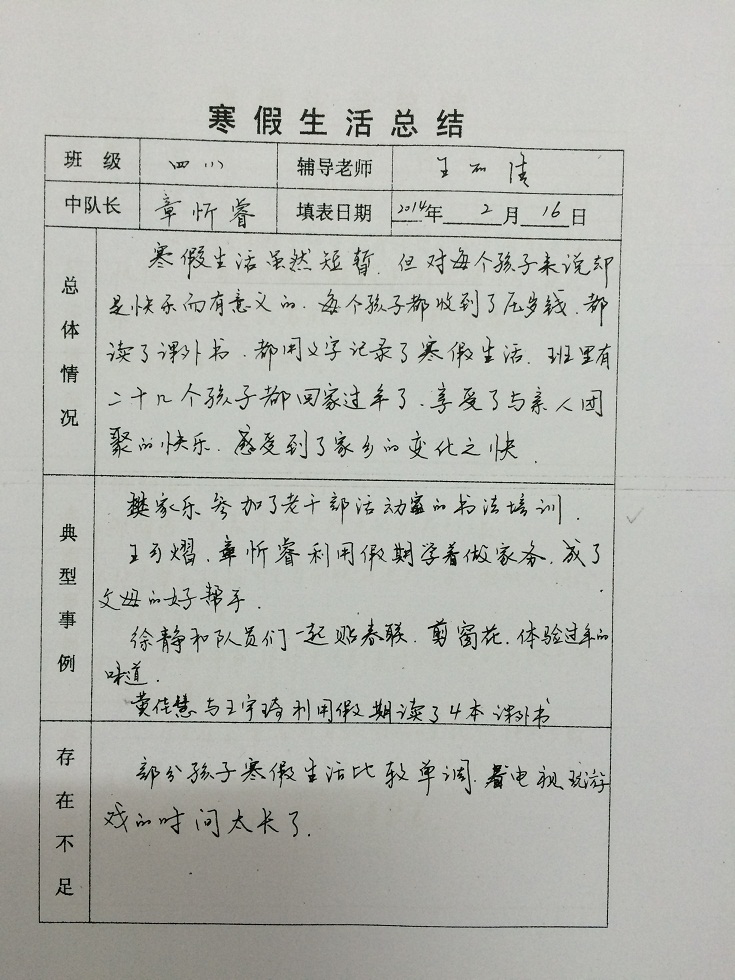 寒假生活总结
班 级 四 辅导老师 王 倩
中队长 章忻睿 填表日期 2014年 2 月 16 日
总体情况
寒假生活虽然短暂，但对每个孩子来说却
是快乐而有意义的。每个孩子都收到了压岁钱、都
读了课外书、都用文字记录了寒假生活。班里有
二十几个孩子都回家过年了，享受了与亲人团
聚的快乐，感受到了家乡的变化之快。
典型事例
樊家乐参加了老干部活动室的书法培训。
王 熠、章忻睿利用假期学着做家务，成了
父母的好帮手。
徐静和队员们一起贴春联、剪窗花，体验过年的
味道。
黄佳慧与王宇琦利用假期读了4本课外书
存在不足
部分孩子寒假生活比较单调，看电视玩游
戏的时间太长了。